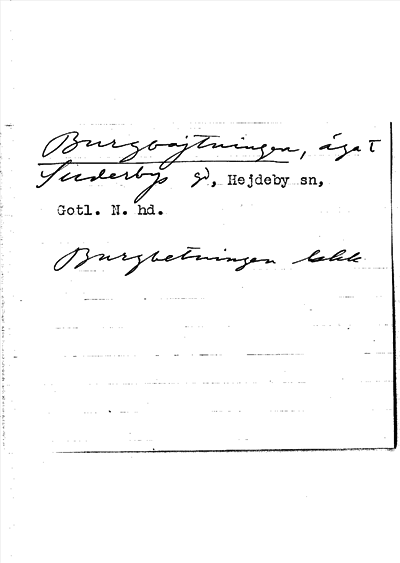 Burgvajtningen, äga t
Suderbys gd, Hejdeby sn,
Gotl. N. hd.
Burgbetningen